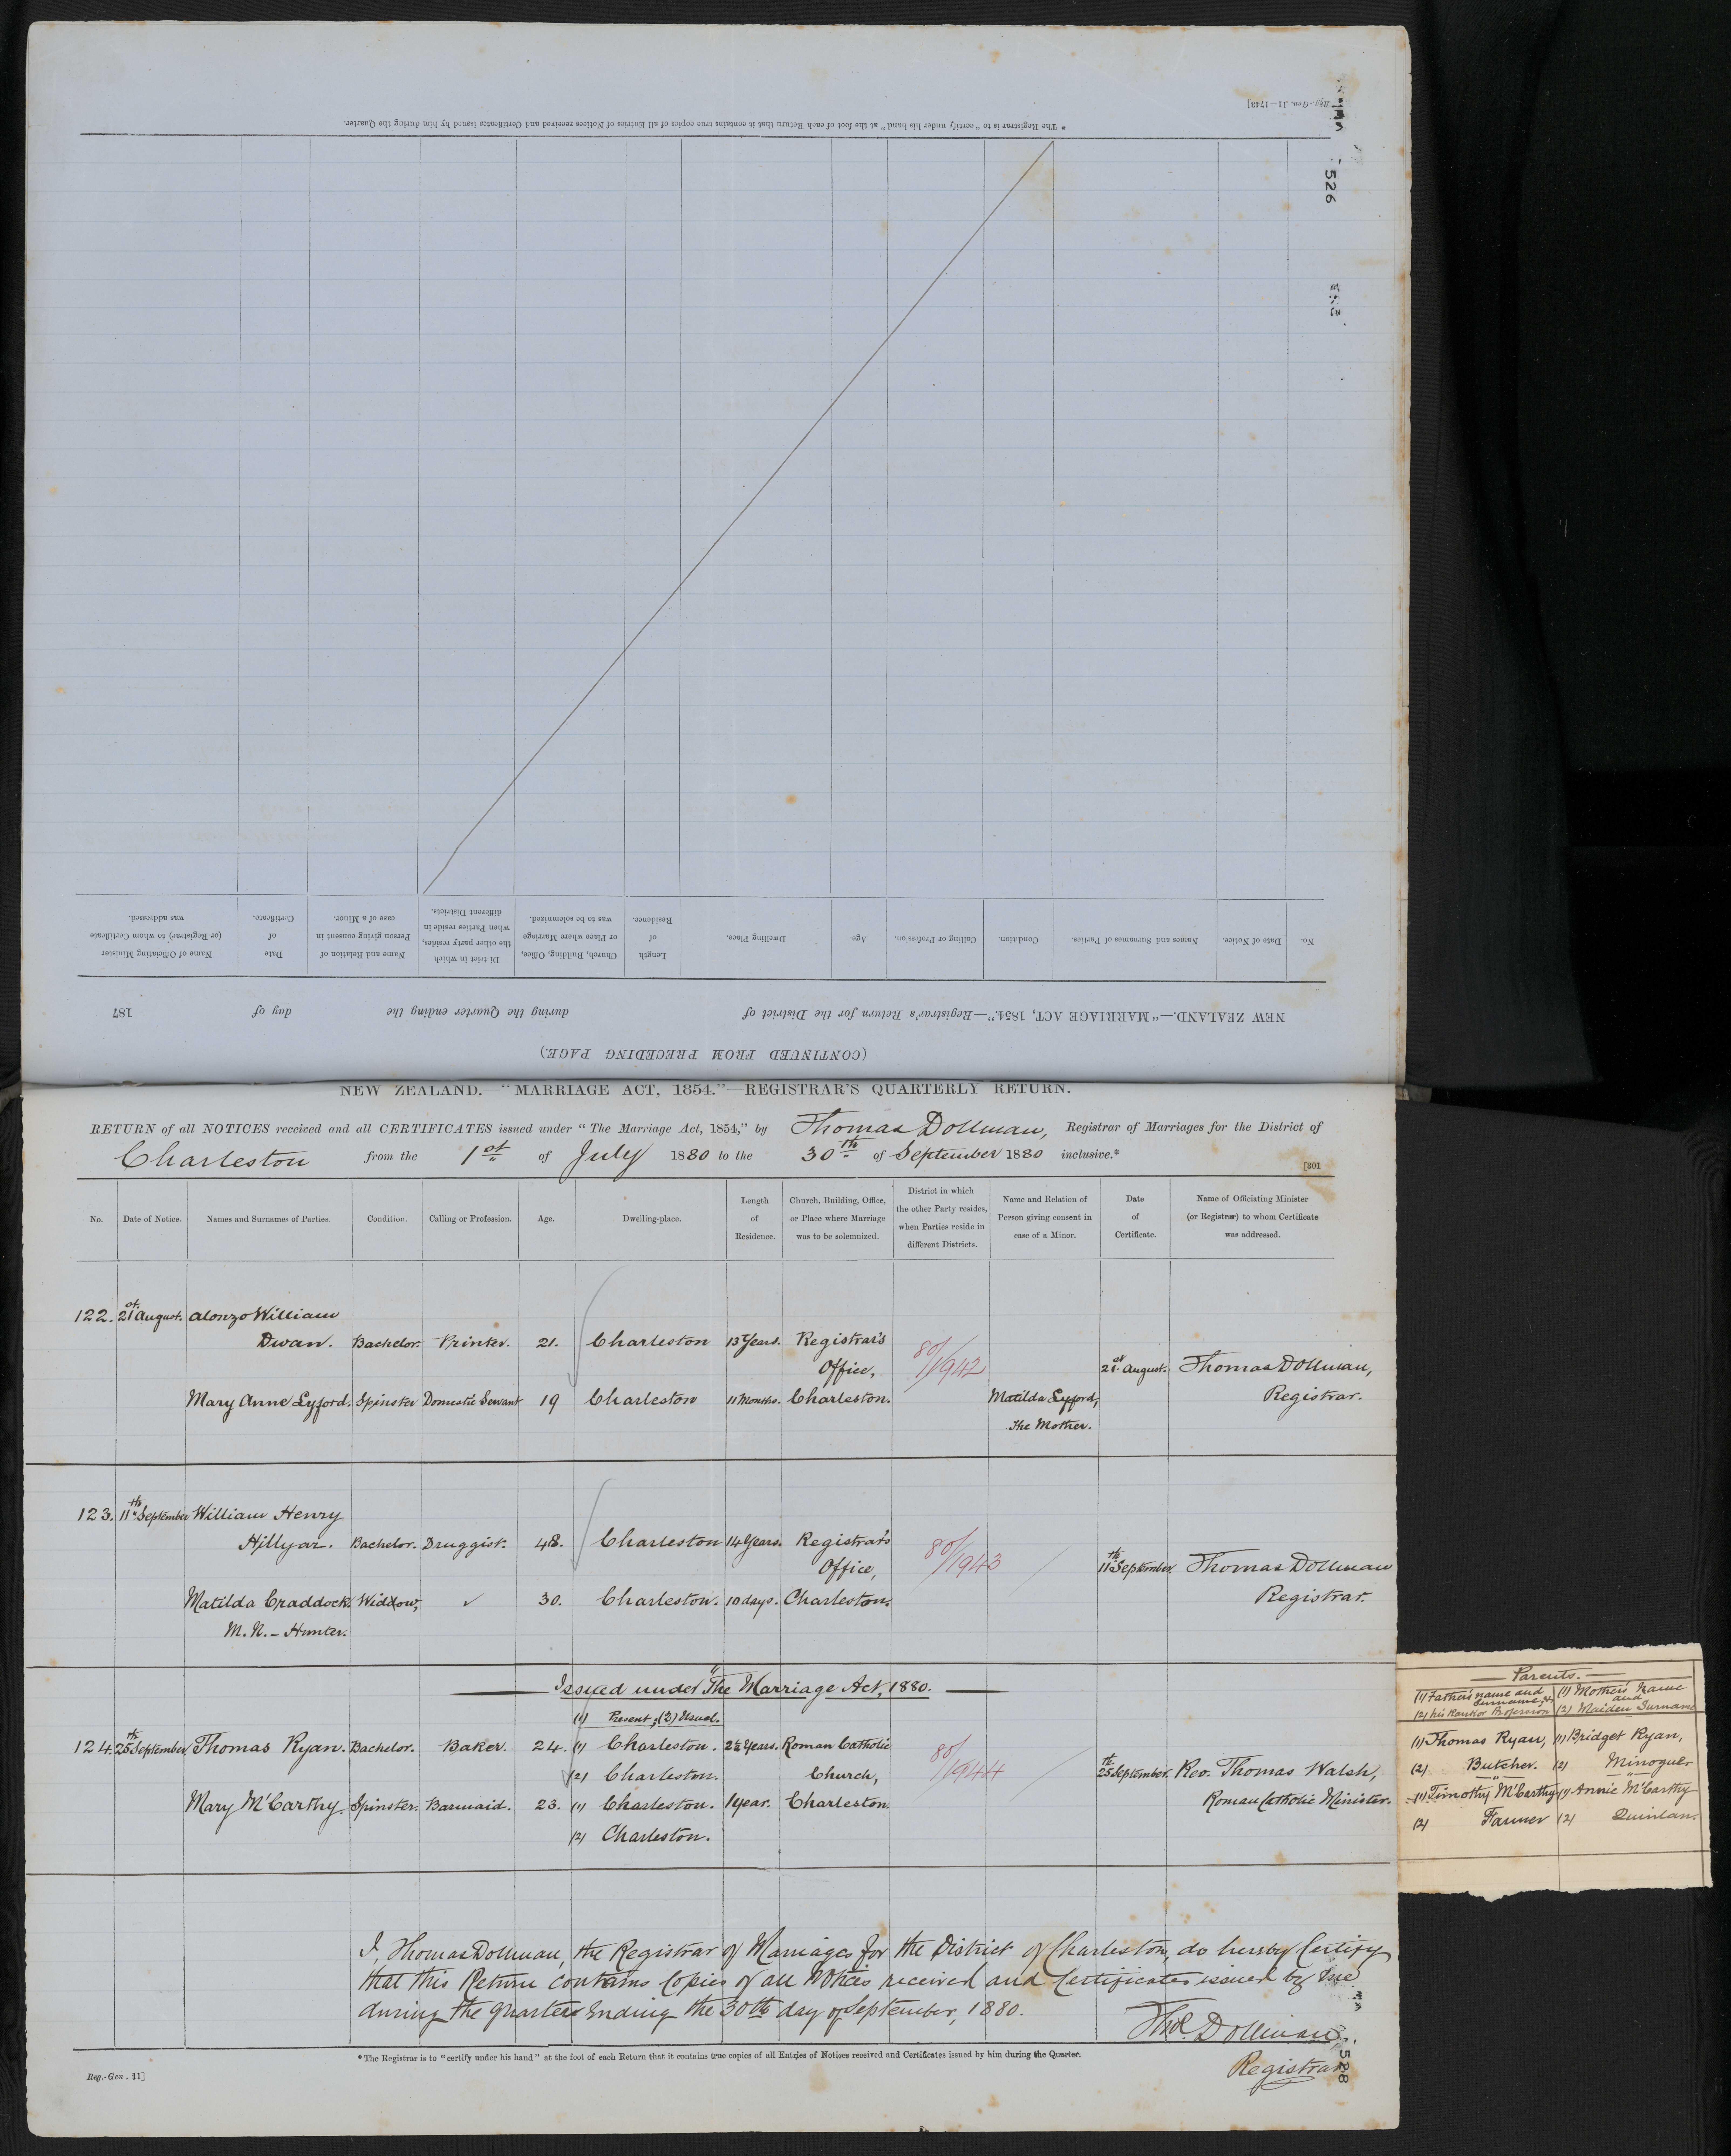 Reg.-Gen. 11—1743]
* The Registrar is to "certify under his hand" at the foot of each Return that it contains true copies of all Entries of Notices received and Certificates issued by him during the Quarter.
526
No.
Date of Notice.
Names and Surnames of Parties.
Condition.
Calling or Profession.
Age.
Dwelling Place.
Length
of
Residence.
Church, Building, Office,
or Place where Marriage
was to be solemnized.
District in which
the other party resides,
when Parties reside in
different Districts.
Name and Relation of
Person giving consent in
case of a Minor.
Date
of
Certificate.
Name of Officiating Minister
(or Registrar) to whom Certificate
was addressed.
NEW ZEALAND.—"MARRIAGE ACT, 1854."—Registrar's Return for the District of during the Quarter ending the day of 187
(CONTINUED FROM PRECEDING PAGE.)
NEW ZEALAND.—"MARRIAGE ACT, 1854."—REGISTRAR'S QUARTERLY RETURN.
RETURN of all NOTICES received and all CERTIFICATES issued under "The Marriage Act, 1854," by Thomas Dollman, Registrar of Marriages for the District of
Charleston from the 1st of July 1880 to the 30th of September 1880 inclusive.*
[301
No.
Date of Notice.
Names and Surnames of Parties.
Condition.
Calling or Profession.
Age.
Dwelling-place.
Length
of
Residence.
Church, Building, Office,
or Place where Marriage
was to be solemnized.
District in which
the other Party resides,
when Parties reside in
different Districts.
Name and Relation of
Person giving consent in
case of a Minor.
Date
of
Certificate.
Name of Officiating Minister
(or Registrar) to whom Certificate
was addressed.
122. 21st August. Alonzo William
Dwan. Bachelor. Printer. 21. Charleston 13 Years. Registrar's
Office, 80/1942 21st August. Thomas Dollman,
Mary Anne Lyford. Spinster Domestic Servant 19 Charleston 11 Months. Charleston. Matilda Lyford, Registrar.
the Mother.
123. 11th September William Henry
Hillyar. Bachelor. Druggist. 48. Charleston 14 Years. Registrar's
Office, 80/1943 11th September Thomas Dollman
Matilda Craddock. Widow, 30. Charleston. 10 days. Charleston. Registrar.
M.N. - Hunter.
Issued under "The Marriage Act, 1880.
(1) Present; (2) Usual.
124. 25th September Thomas Ryan. Bachelor. Baker. 24. (1) Charleston. 2½ Years. Roman Catholic
(2) Charleston. Church, 80/1944 25th September. Rev. Thomas Walsh,
Mary McCarthy. Spinster. Barmaid. 23. (1) Charleston. 1 year. Charleston Roman Catholic Minister.
(2) Charleston.
Parents.
(1) Father's name and Surname, & (1) Mother's Name and
(2) his Rank or Profession (2) Maiden Surname
(1) Thomas Ryan, (1) Bridget Ryan,
(2) Butcher. (2) Minogue
(1) Timothy McCarthy (1) Annie McCarthy
(2) Farmer (2) Quinlan.
I, Thomas Dollman, the Registrar of Marriages for the District of Charleston, do hereby Certify
that this Return contains Copies of all Notices received and Certificates issued by me
during the quarter Ending the 30th day of September, 1880.
Thos. Dollman,
Registrar
* The Registrar is to "certify under his hand" at the foot of each Return that it contains true copies of all Entries of Notices received and Certificates issued by him during the Quarter.
Reg.-Gen. 11]
528